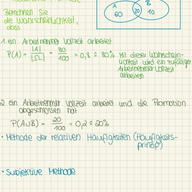 Berechnen Sie
die Wahrscheinlichkeit,
dass
A
B
60
20
10
1 ein Arbeitnehmer Vollzeit arbeitet
P(A) = |A| / |Ω| = 80 / 100 = 0,8 ≙ 80%
Mit dieser Wahrschein-
lichkeit wird ein zufälliger
Arbeitnehmer Vollzeit
arbeiten
2 ein Arbeitnehmer Vollzeit arbeitet und die Promotion
abgeschlossen hat
20 / 100 = 0,2 ≙ 20%
• Methode der relativen Häufigkeiten (Häufigkeits-
prinzip)
• Subjektive Methode